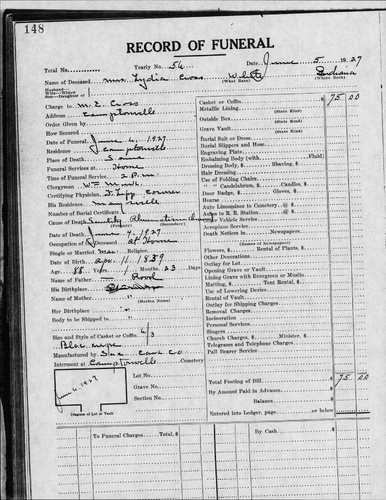 148
RECORD OF FUNERAL
Total No. Yearly No. 54 Date June 5, 1927
Name of Deceased Mrs. Lydia Cross White Indiana
(What Race) (Where Born)
Husband-
Wife-Widow
Son-Daughter of
Charge to M. E. Cross
Address Camptonville
Order Given by
How Secured
Date of Funeral June 6, 1927
Residence Camptonville
Place of Death Same
Funeral Services at Home
Time of Service 2 P.M.
Clergyman Wm
Certifying Physician Coroner
His Residence Marysville
Number of Burial Certificate
Cause of Death Senility
(Primary) (Secondary)
Date of Death June 4, 1927
Occupation of Deceased at Home
Single or Married Mar. Religion
Date of Birth Apr. 11 1839
Age 88 Years 1 Months 23 Days
Name of Father Root
His Birthplace
Name of Mother
(Maiden Name)
Her Birthplace
Body to be Shipped to
Size and Style of Casket or Coffin 6/3
Blac crepe
Manufactured by Sac. Cask Co
Interment at Camptonville Cemetery
Lot No.
Grave No.
Section No.
June 6, 1927
Diagram of Lot or Vault
Casket or Coffin $ 75 00
Metallic Lining
(State Kind)
Outside Box
(State Kind)
Grave Vault
(State Kind)
Burial Suit or Dress
Burial Slippers and Hose
Engraving Plate
Embalming Body (with Fluid)
Dressing Body, $ Shaving, $
Hair Dressing
Use of Folding Chairs
" " Candelabrum, $ Candles, $
Door Badge, $ Gloves, $
Hearse
Auto Limousines to Cemetery @ $
Autos to R. R. Station @ $
Vehicle Service
Aeroplane Service
Death Notices in Newspapers
(Names of Newspapers)
Flowers, $ Rental of Plants, $
Other Decorations
Outlay for Lot
Opening Grave or Vault
Lining Grave with Evergreen or Muslin
Matting, $ Tent Rental, $
Use of Lowering Device
Rental of Vault
Outlay for Shipping Charges
Removal Charges
Incineration
Personal Services
Singers
Church Charges, $ Minister, $
Telegrams and Telephone Charges
Pall Bearer Service
Total Footing of Bill $ 75 00
By Amount Paid in Advance
Balance
Entered into Ledger, page or below
To Funeral Charges, Total $ By Cash $